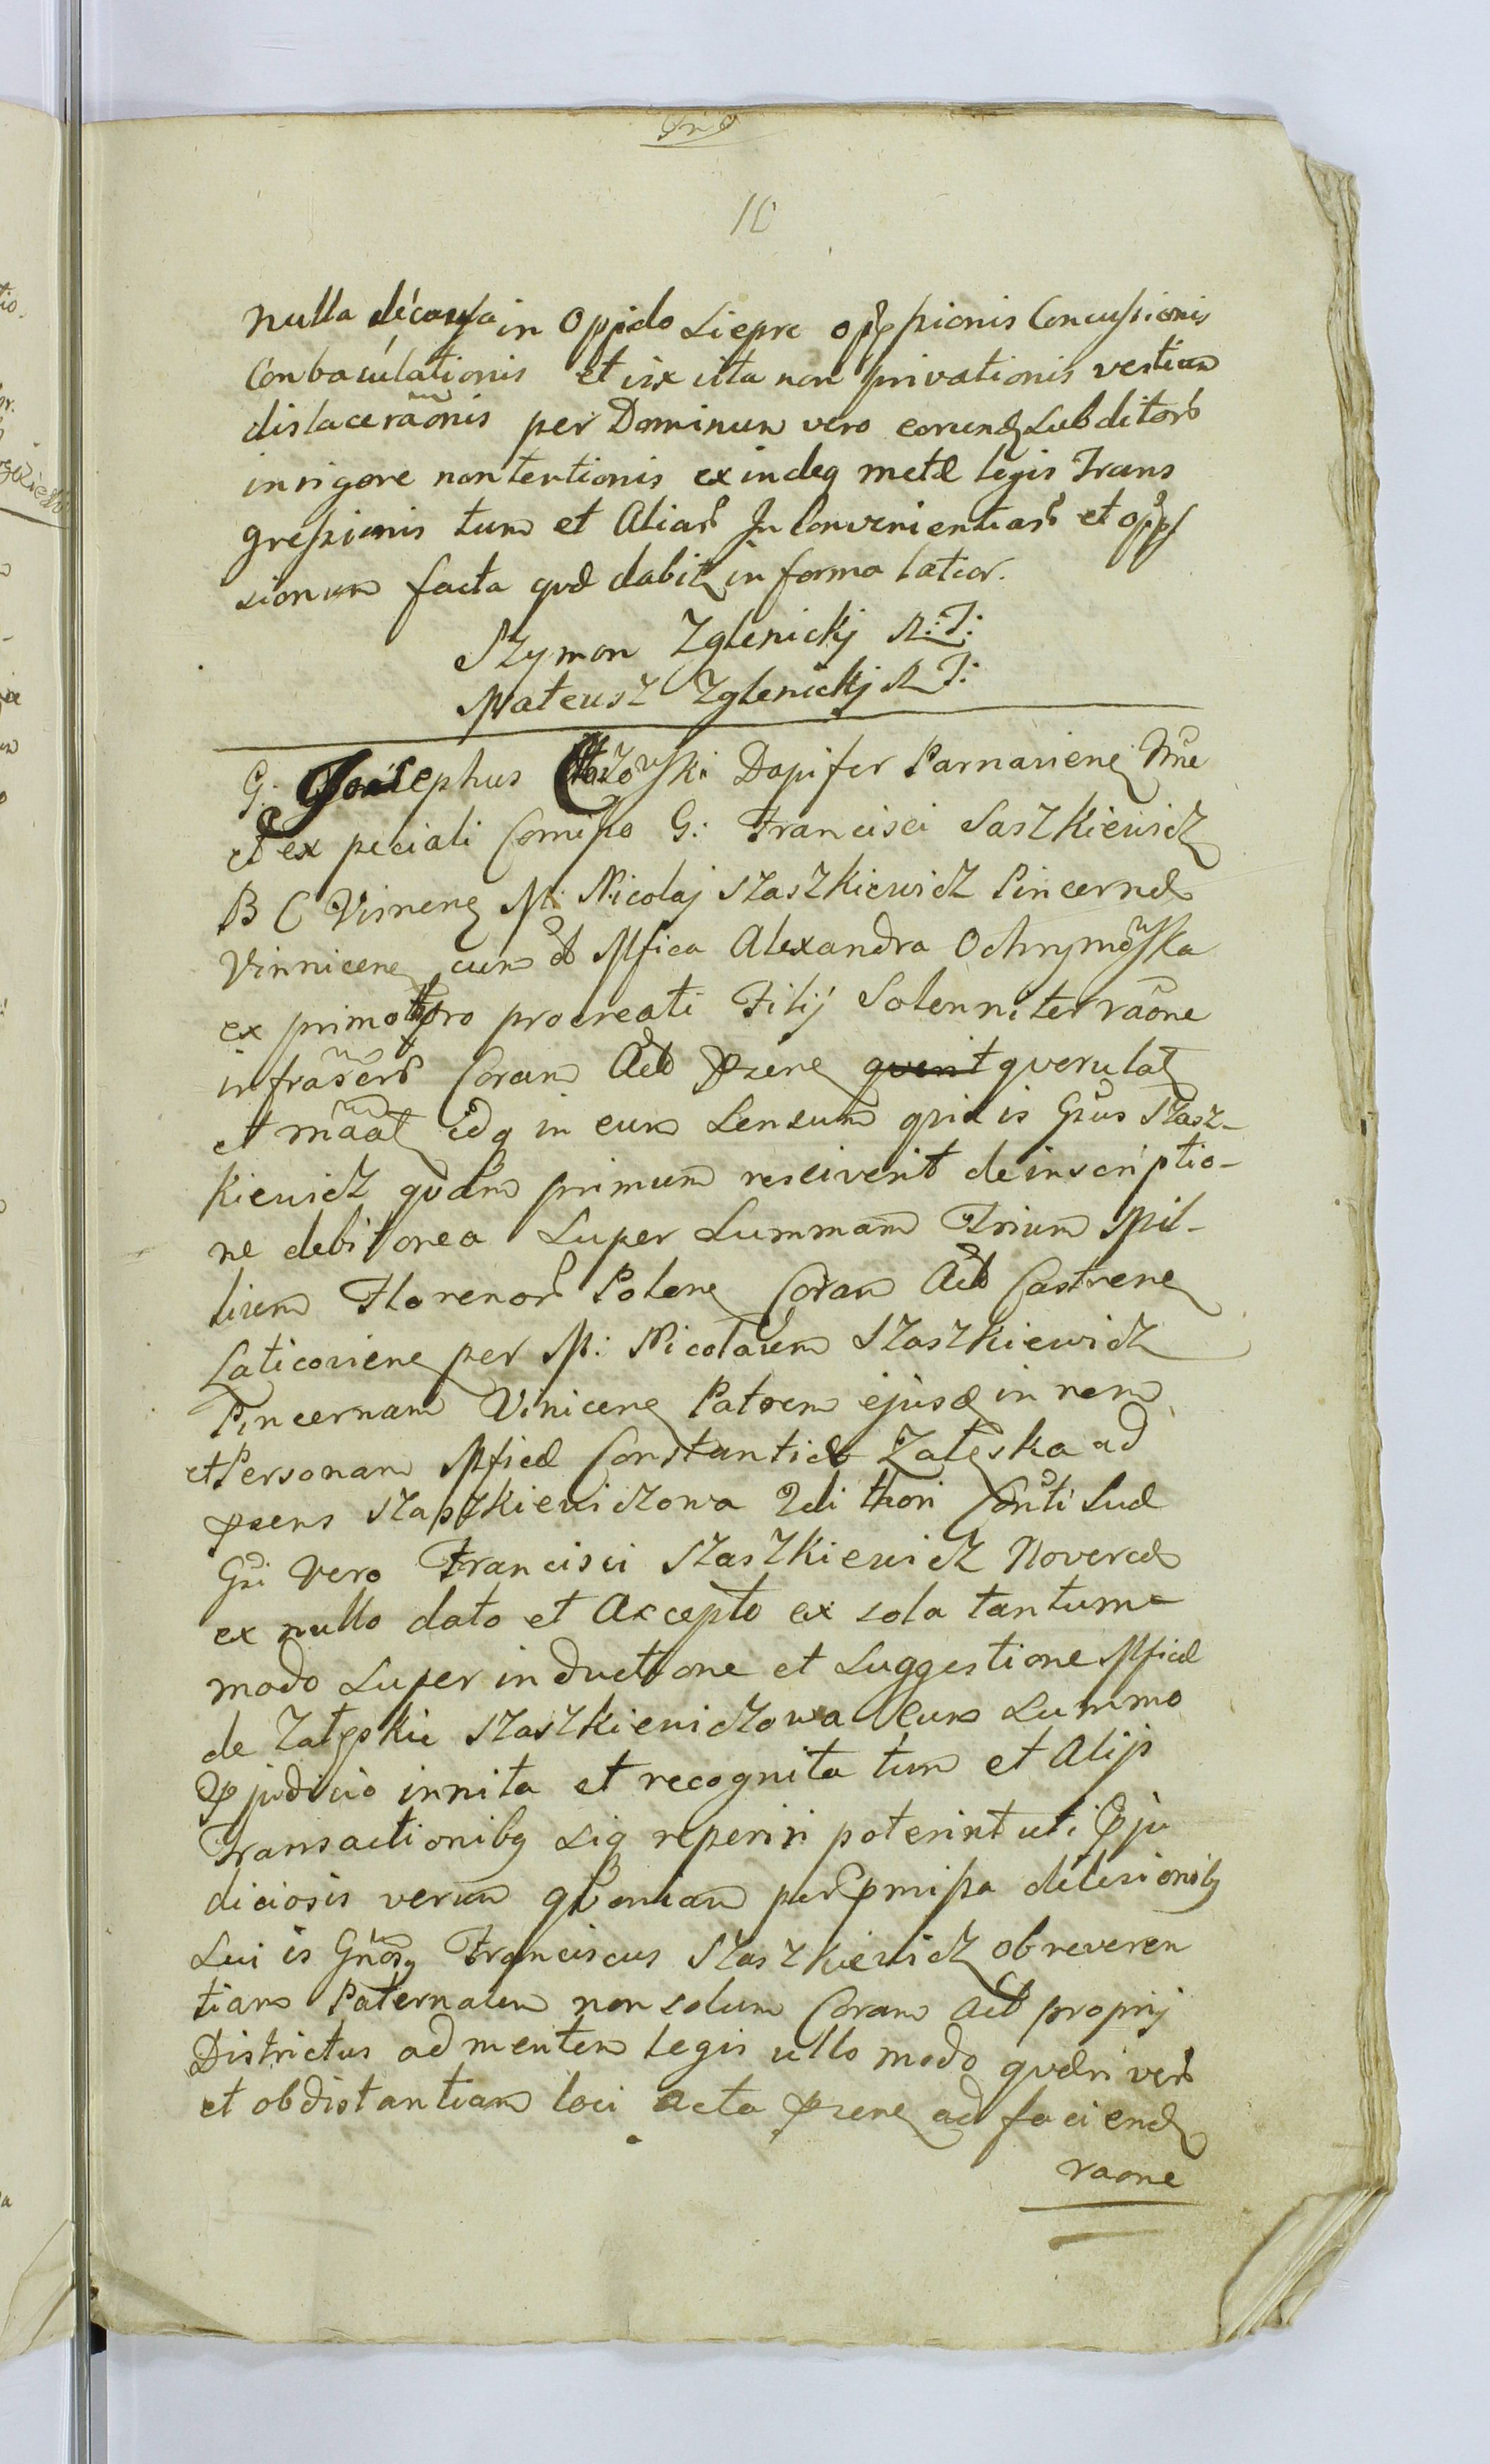 10
nulla de causa in Oppido Siepre opp̃ssionis Concussionis
Conbaculationis et vix vita non privationis vestium
dislacerãonis per Dominum vero eorund Subditor
in rigore non tentionis exindeq metæ legis Trans
gressionis tum et Aliar Inconvenientiar et opp̃s
sionum facta qvæ dabit in forma latior.
Szymon Zglenickj M: I:
Mateusz Zglenickj M I:
G: Josephus Dapifer Parnavien Nne
et ex peciali Comisso G: Francisci Saszkiewicz
B C Vismen M: Nicolaj Szaszkiewicz Pincernæ
Vinnicen cum Mfica Alexandra Ochrymowska
ex primo thoro procreati Filij Solenniter rãone
infrãscr Coram Act Pzsen qverit qverulat
et mãat idq in eum Sensum qvia is Gsus Szasz-
kiewicz qvam primum resciverit de inscriptio-
ne debitorea Super Summam Trium Mil-
lium Florenor Polon Coram Act Castren
Laticovien per M: Nicolaum Szaszkiewicz
Pincernam Vinicen Patrem ejusd in rem
et Personam Mficæ Constantiæ Załęska ad
psens Szaszkiewiczowa 2di thori Conti Suæ
Gsi vero Francisci Szaszkiewicz Novercæ
ex nullo dato et Accepto ex sola tantum=
modo Superinductione et Suggestione Mficæ
de Załęskie Szaszkiewiczowa cum Summo
Pjudicio innita et recognita tum et Alijs
Transactionibq Siq reperiri poterint uti Pju
diciosis verum qvoniam per pmissa delesionibq
Sui is Gnosq Franciscus Szaszkiewicz ob reveren
tiam Paternalem non solum Coram Act proprij
Districtus ad mentem legis ullo modo qværi ver
et ob distantiam loci Acta Pzsen ad faciend
raone